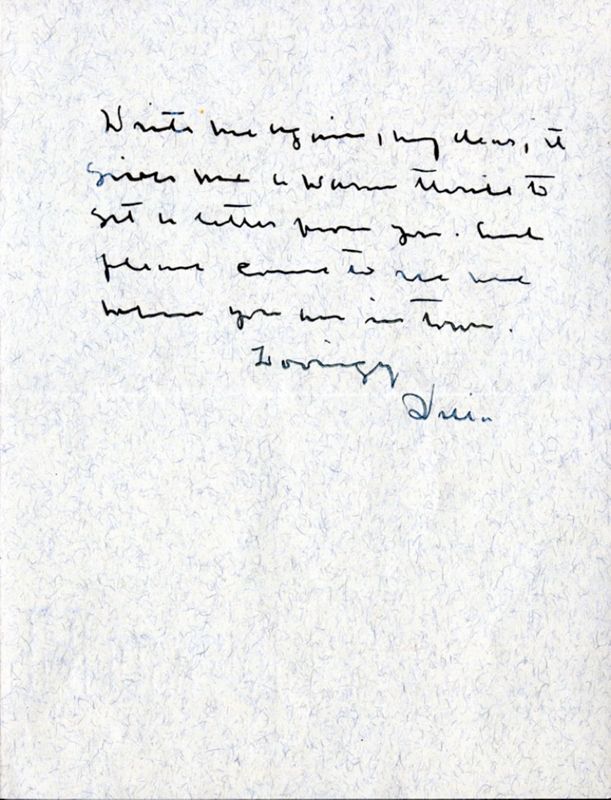 Write me again, my dear, it
gives me a warm thrill to
get a letter from you. And
please come to see me
when you are in town.
Lovingly